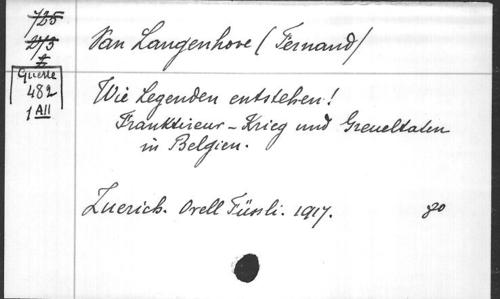 725
275
Guerre
482
1 AII
Van Langenhove (Fernand)
Wie Legenden entstehen!
Franktireur-Krieg und Greueltaten
in Belgien.
Zuerich. Orell Füssli. 1917. 80